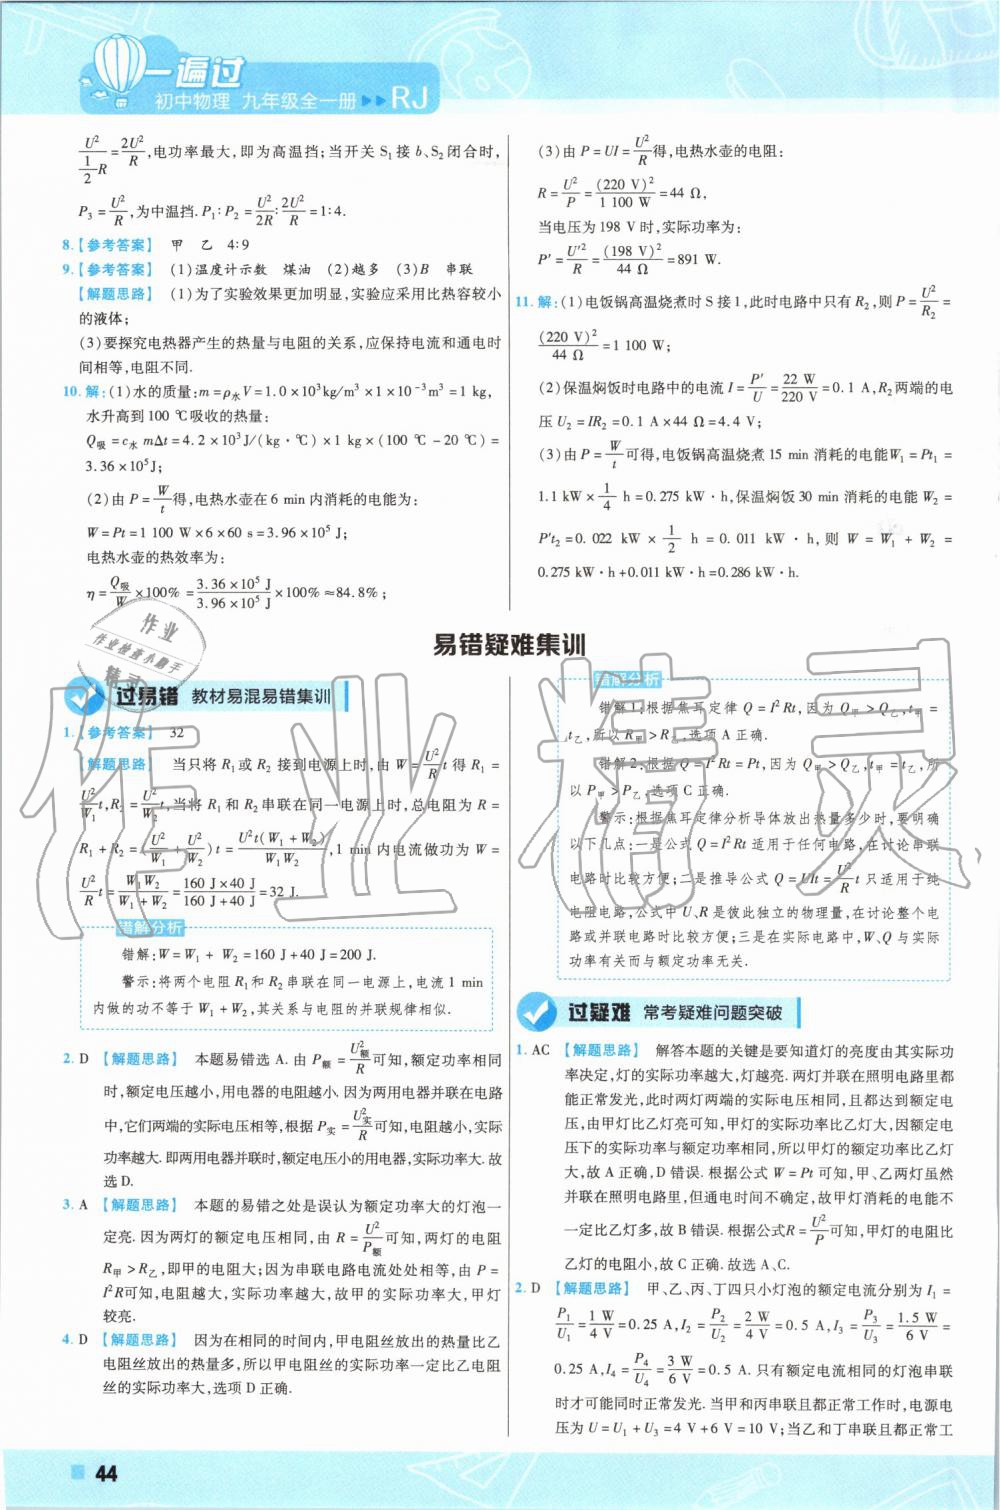 一遍过
初中物理 九年级全一册 ▶▶ RJ
U²/(1/2 R)=2U²/R,电功率最大,即为高温挡;当开关 S₁ 接 b、S₂ 闭合时,
P₃=U²/R,为中温挡.P₁∶P₂=U²/2R∶2U²/R=1∶4.
8.【参考答案】 甲 乙 4∶9
9.【参考答案】 (1)温度计示数 煤油 (2)越多 (3)B 串联
【解题思路】 (1)为了实验效果更加明显,实验应采用比热容较小
的液体;
(3)要探究电热器产生的热量与电阻的关系,应保持电流和通电时
间相等,电阻不同.
10.解:(1)水的质量:m=ρ水V=1.0×10³kg/m³×1×10⁻³m³=1 kg,
水升高到100 ℃吸收的热量:
Q吸=c水 mΔt=4.2×10³J/(kg·℃)×1 kg×(100 ℃-20 ℃)=
3.36×10⁵J;
(2)由 P=W/t得,电热水壶在6 min内消耗的电能为:
W=Pt=1 100 W×6×60 s=3.96×10⁵ J;
电热水壶的热效率为:
η=Q吸/W×100%=3.36×10⁵ J/3.96×10⁵ J×100%≈84.8%;
(3)由 P=UI=U²/R得,电热水壶的电阻:
R=U²/P=(220 V)²/1 100 W=44 Ω,
当电压为198 V时,实际功率为:
P'=U'²/R=(198 V)²/44 Ω=891 W.
11.解:(1)电饭锅高温烧煮时S接1,此时电路中只有R₂,则P=U²/R₂=
(220 V)²/44 Ω=1 100 W;
(2)保温焖饭时电路中的电流 I=P'/U=22 W/220 V=0.1 A,R₂两端的电
压 U₂=IR₂=0.1 A×44 Ω=4.4 V;
(3)由 P=W/t可得,电饭锅高温烧煮15 min消耗的电能W₁=Pt₁=
1.1 kW×1/4 h=0.275 kW·h,保温焖饭30 min消耗的电能 W₂=
P't₂=0.022 kW×1/2 h=0.011 kW·h,则 W=W₁+W₂=
0.275 kW·h+0.011 kW·h=0.286 kW·h.
易错疑难集训
过易错 教材易混易错集训
1.【参考答案】 32
【解题思路】 当只将 R₁或 R₂ 接到电源上时,由 W=U²/R t得 R₁=
U²/W₁ t,R₂=U²/W₂ t,当将 R₁ 和 R₂ 串联在同一电源上时,总电阻为 R=
R₁+R₂=(U²/W₁+U²/W₂)t=U²t(W₁+W₂)/W₁W₂,1 min内电流做功为 W=
U²/R t=W₁W₂/(W₁+W₂)=160 J×40 J/(160 J+40 J)=32 J.
错解分析
错解:W=W₁+W₂=160 J+40 J=200 J.
警示:将两个电阻 R₁和 R₂串联在同一电源上,电流 1 min
内做的功不等于 W₁+W₂,其关系与电阻的并联规律相似.
2. D 【解题思路】 本题易错选 A.由 P额=U额²/R可知,额定功率相同
时,额定电压越小,用电器的电阻越小.因为两用电器并联在电路
中,它们两端的实际电压相等,根据 P实=U实²/R可知,电阻越小,实际
功率越大.即两用电器并联时,额定电压小的用电器,实际功率大.故
选 D.
3. A 【解题思路】 本题的易错之处是误认为额定功率大的灯泡一
定亮.因为两灯的额定电压相同,由 R=U²/P额可知,两灯的电阻
R甲>R乙,即甲的电阻大;因为串联电路电流处处相等,由 P=
I²R可知,电阻越大,实际功率越大,故甲的实际功率大,甲灯
较亮.
4. D 【解题思路】 因为在相同的时间内,甲电阻丝放出的热量比乙
电阻丝放出的热量多,所以甲电阻丝的实际功率一定比乙电阻
丝的实际功率大,选项 D 正确.
错解分析
错解1:根据焦耳定律 Q=I²Rt,因为 Q甲>Q乙,t甲=
t乙,所以 R甲>R乙,选项 A 正确.
错解2:根据 Q=I²Rt=Pt,因为 Q甲>Q乙,t甲=t乙,所
以 P甲>P乙,选项 C 正确.
警示:根据焦耳定律分析导体放出热量多少时,要明确
以下几点:一是公式 Q=I²Rt 适用于任何电路,在讨论串联
电路时比较方便;二是推导公式 Q=UIt=U²/R t 只适用于纯
电阻电路,公式中 U、R 是彼此独立的物理量,在讨论整个电
路或并联电路时比较方便;三是在实际电路中,W、Q 与实际
功率有关而与额定功率无关.
过疑难 常考疑难问题突破
1. AC 【解题思路】 解答本题的关键是要知道灯的亮度由其实际功
率决定,灯的实际功率越大,灯越亮.两灯并联在照明电路里都
能正常发光,此时两灯两端的实际电压相等,且都达到额定电
压,由甲灯比乙灯亮可知,甲灯的实际功率比乙灯大,因额定电
压下的实际功率与额定功率相同,所以甲灯的额定功率比乙灯
大,故 A 正确,D 错误.根据公式 W=Pt 可知,甲、乙两灯虽然
并联在照明电路里,但通电时间不确定,故甲灯消耗的电能不
一定比乙灯多,故 B 错误.根据公式R=U²/P可知,甲灯的电阻比
乙灯的电阻小,故 C 正确.故选 A、C.
2. D 【解题思路】 甲、乙、丙、丁四只小灯泡的额定电流分别为 I₁=
P₁/U₁=1 W/4 V=0.25 A,I₂=P₂/U₂=2 W/4 V=0.5 A,I₃=P₃/U₃=1.5 W/6 V=
0.25 A,I₄=P₄/U₄=3 W/6 V=0.5 A.只有额定电流相同的灯泡串联
时才可能同时正常发光.当甲和丙串联且都正常工作时,电源电
压为 U=U₁+U₃=4 V+6 V=10 V;当乙和丁串联且都正常工
44
作业精灵
作业
作业检查小助手
精灵